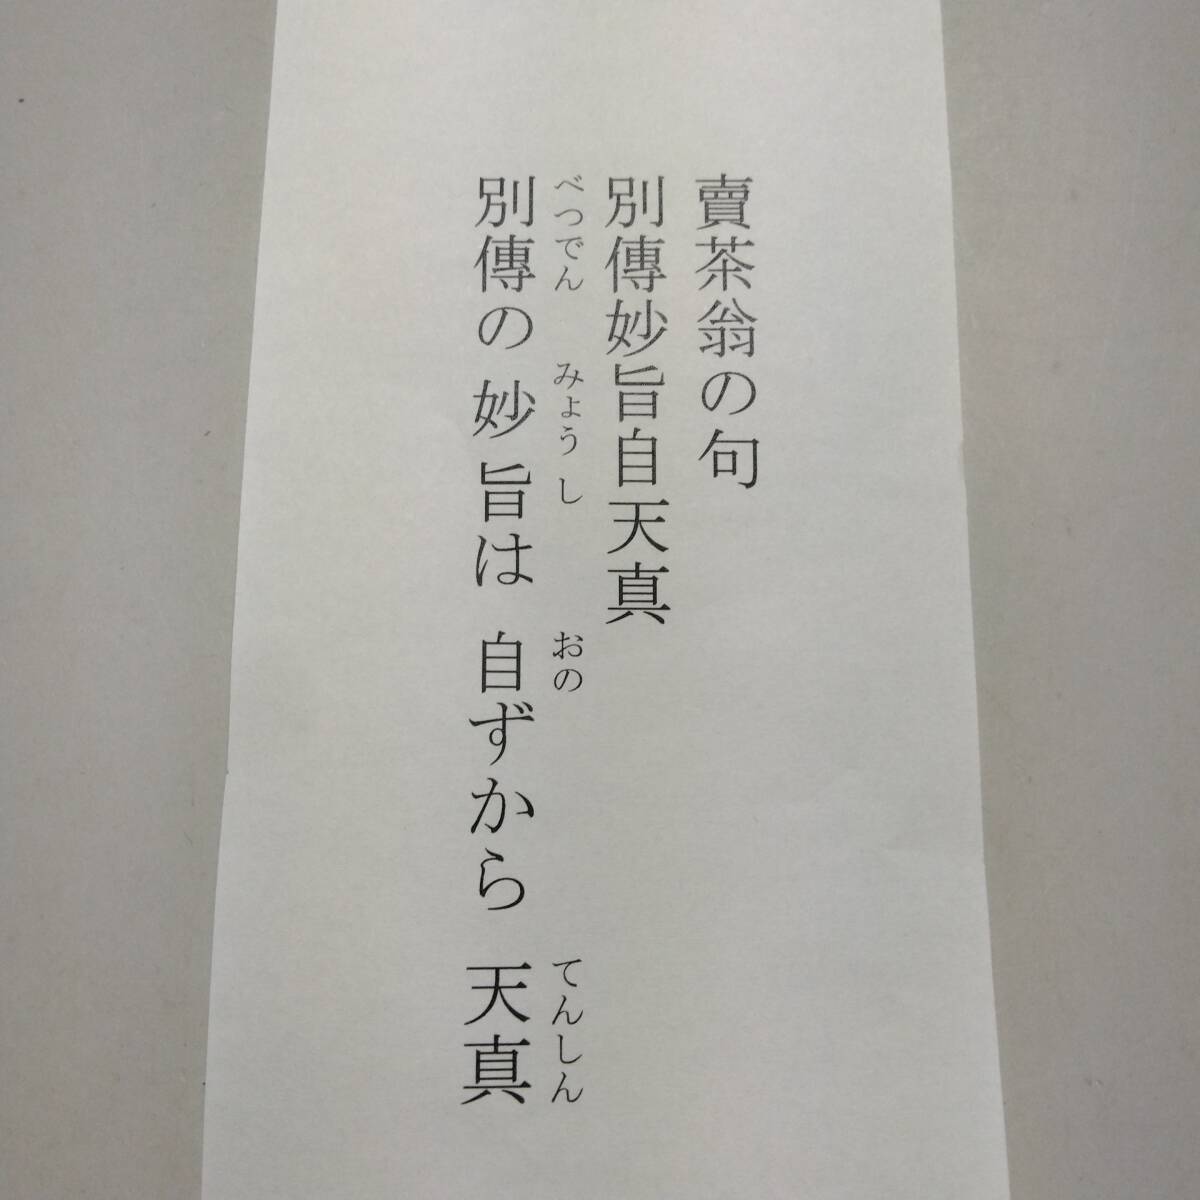 賣茶翁の句
別傳妙旨自天真
べつでん みょうし おの てんしん
別傳の 妙旨は 自ずから 天真